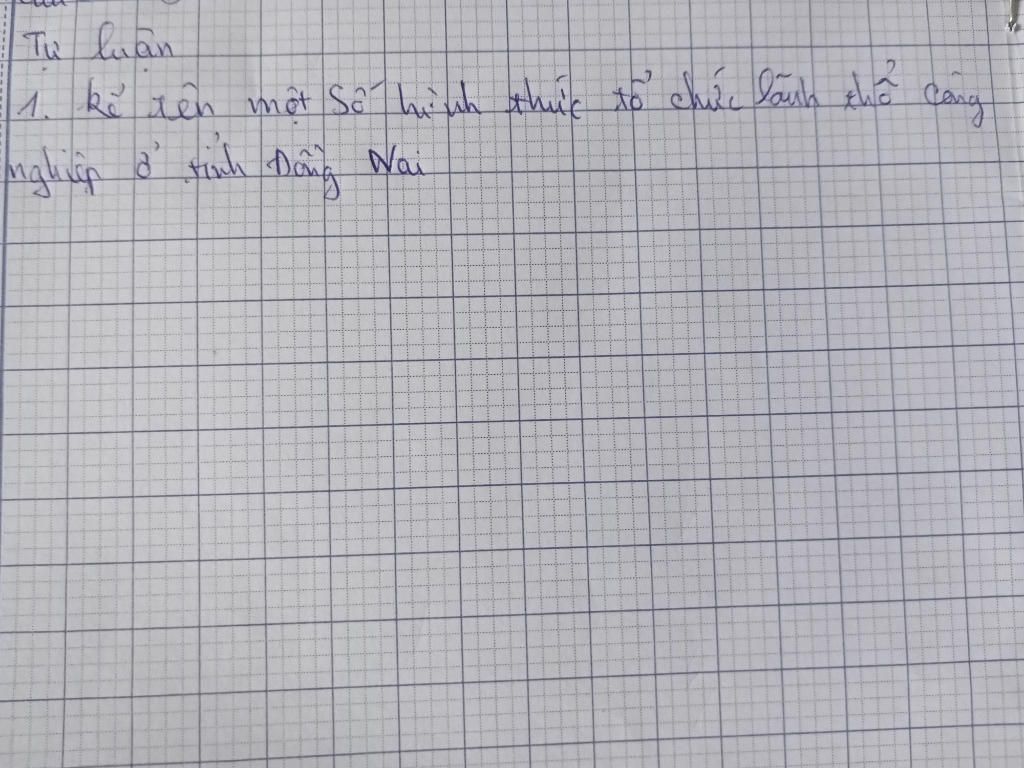 Tự luận
1. Kể tên một số hình thức tổ chức lãnh thổ công
nghiệp ở tỉnh Đồng Nai